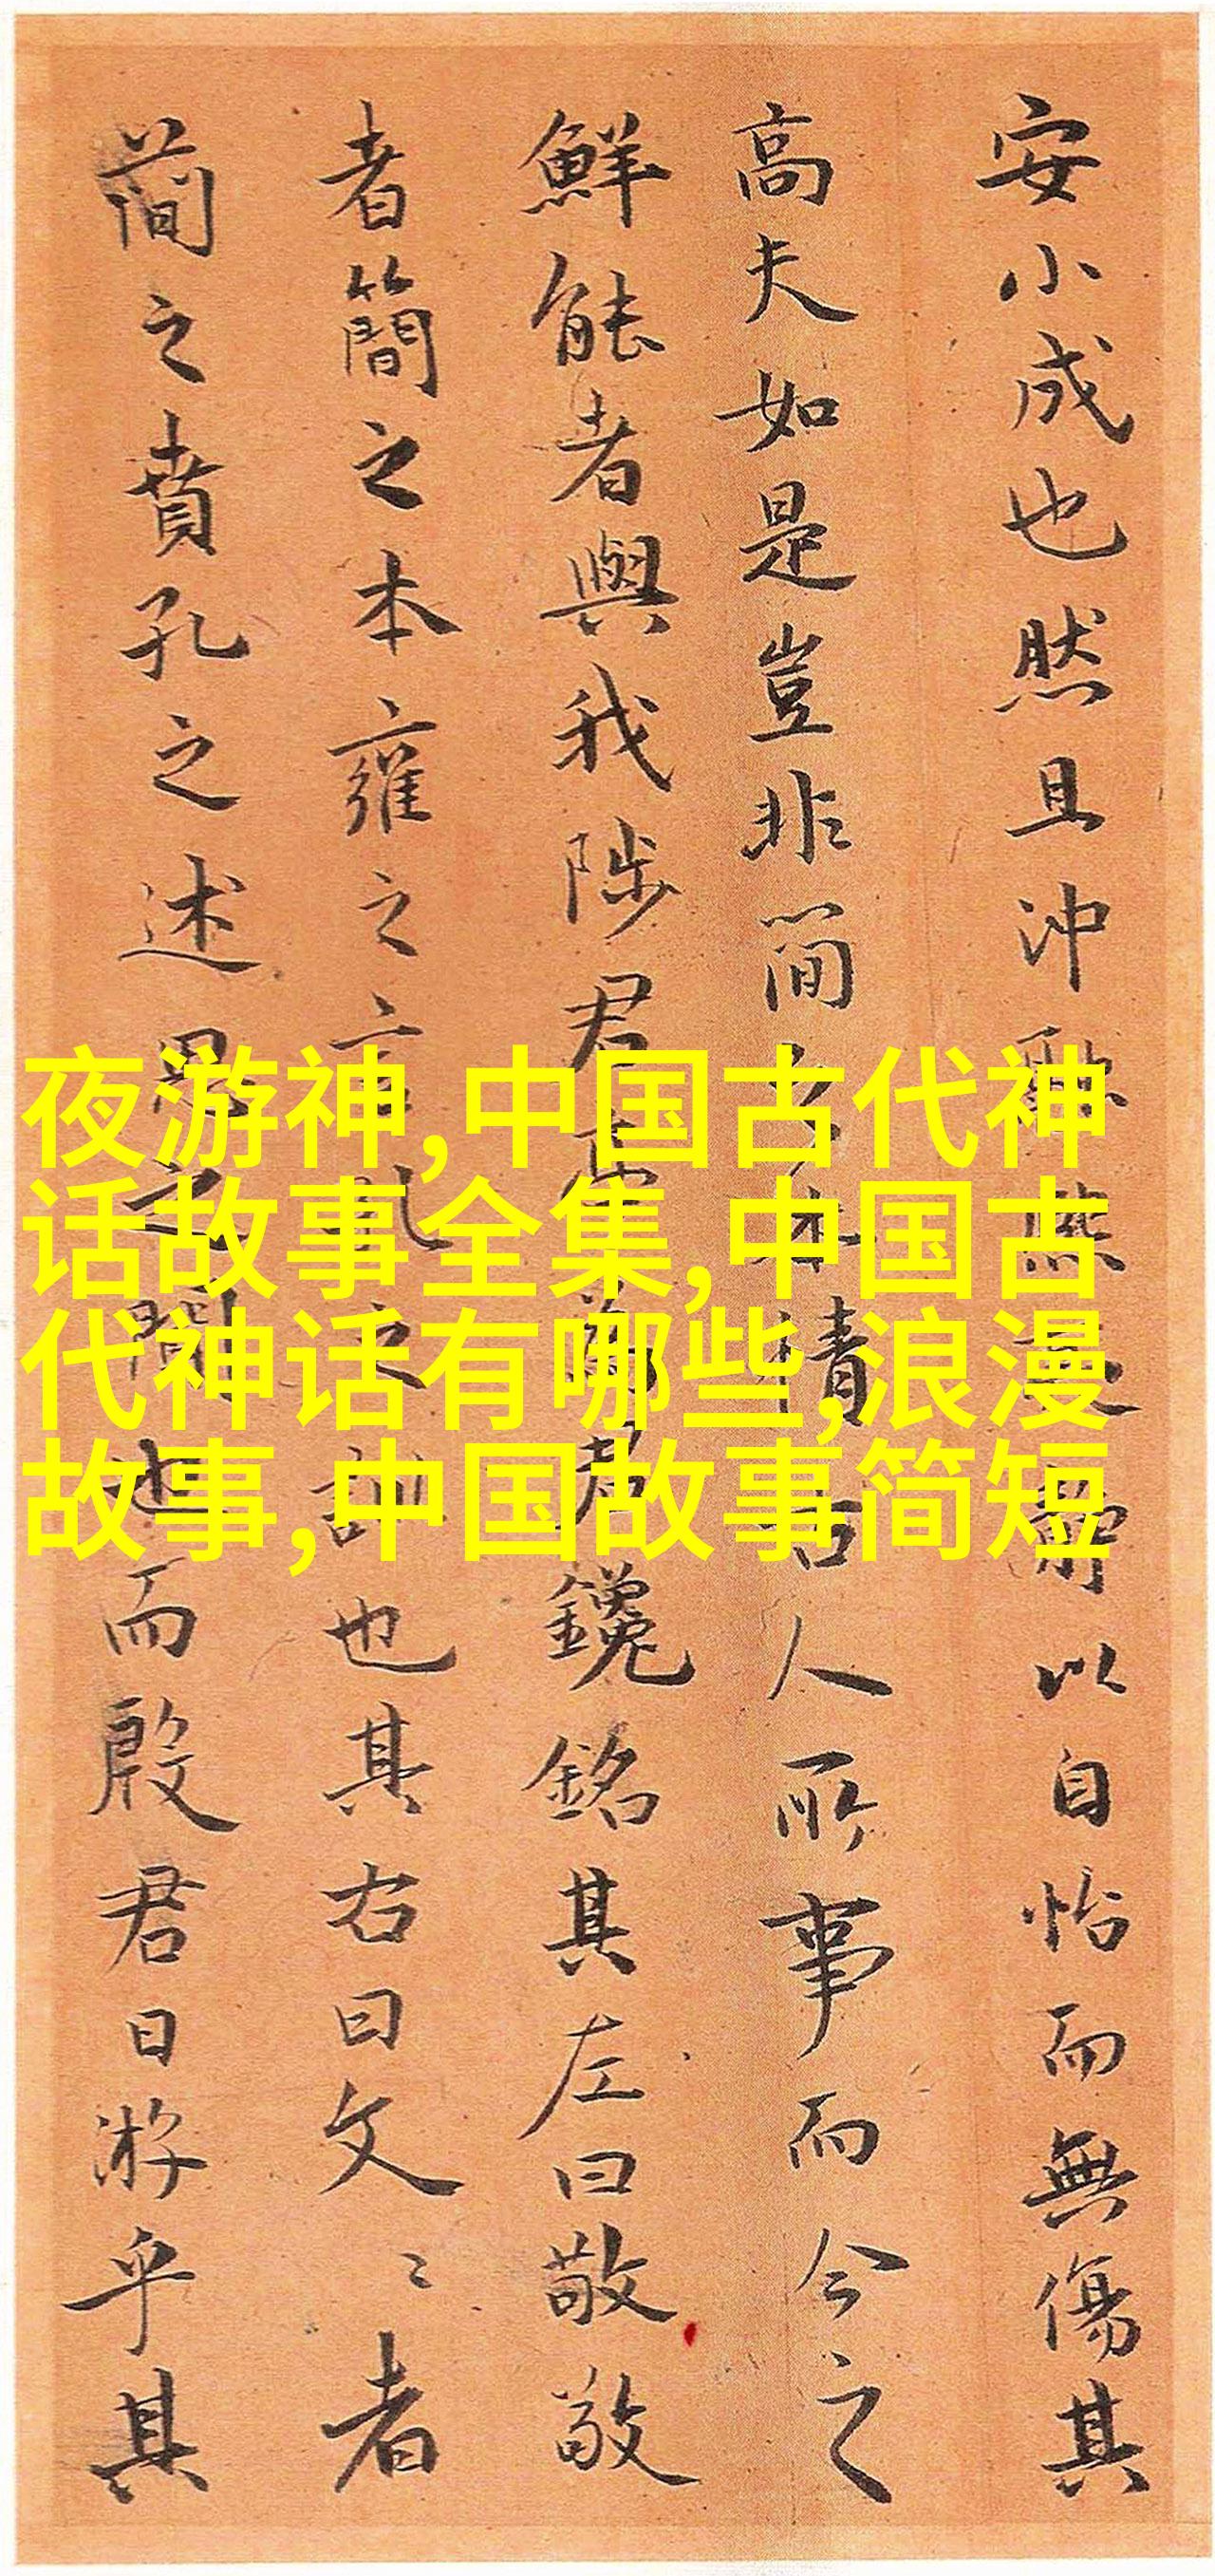 安小成也然且沖
以自怡而無傷其
高夫如是豈非簡
人所事而今之
鮮能者與我陟君
鑱銘其左曰敬敬
者簡之本雍之言
訓也其右曰文〻者
簡之賁孔之述
也而殷君日游乎其
夜游神,中国古代神
话故事全集,中国古
代神话有哪些,浪漫
故事,中国故事简短